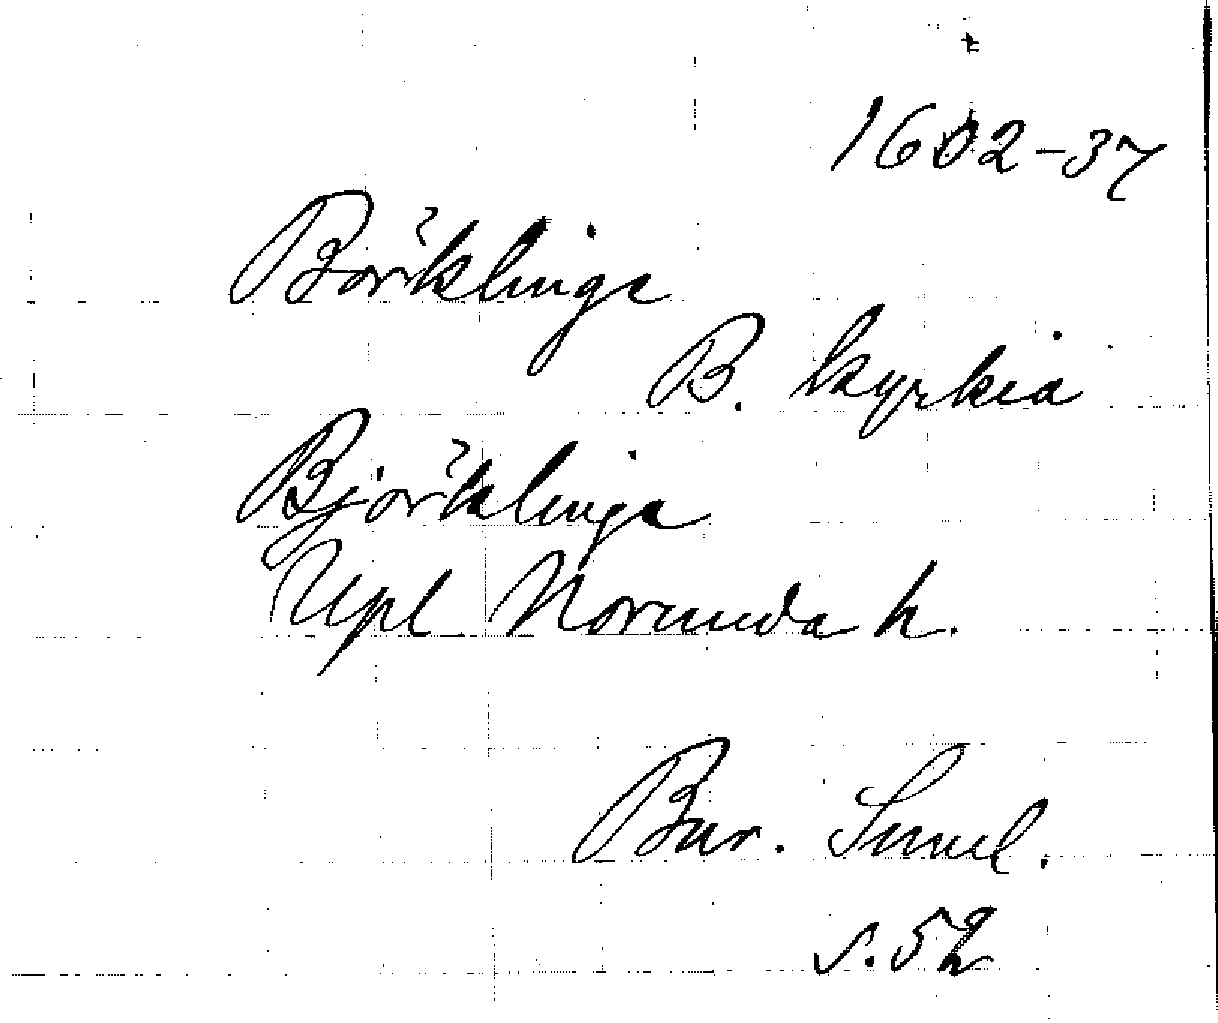 1602-37
Börklinge
B. kyrkia
Björklinge
Upl Norunda h.
Bur. Suml.
s. 52